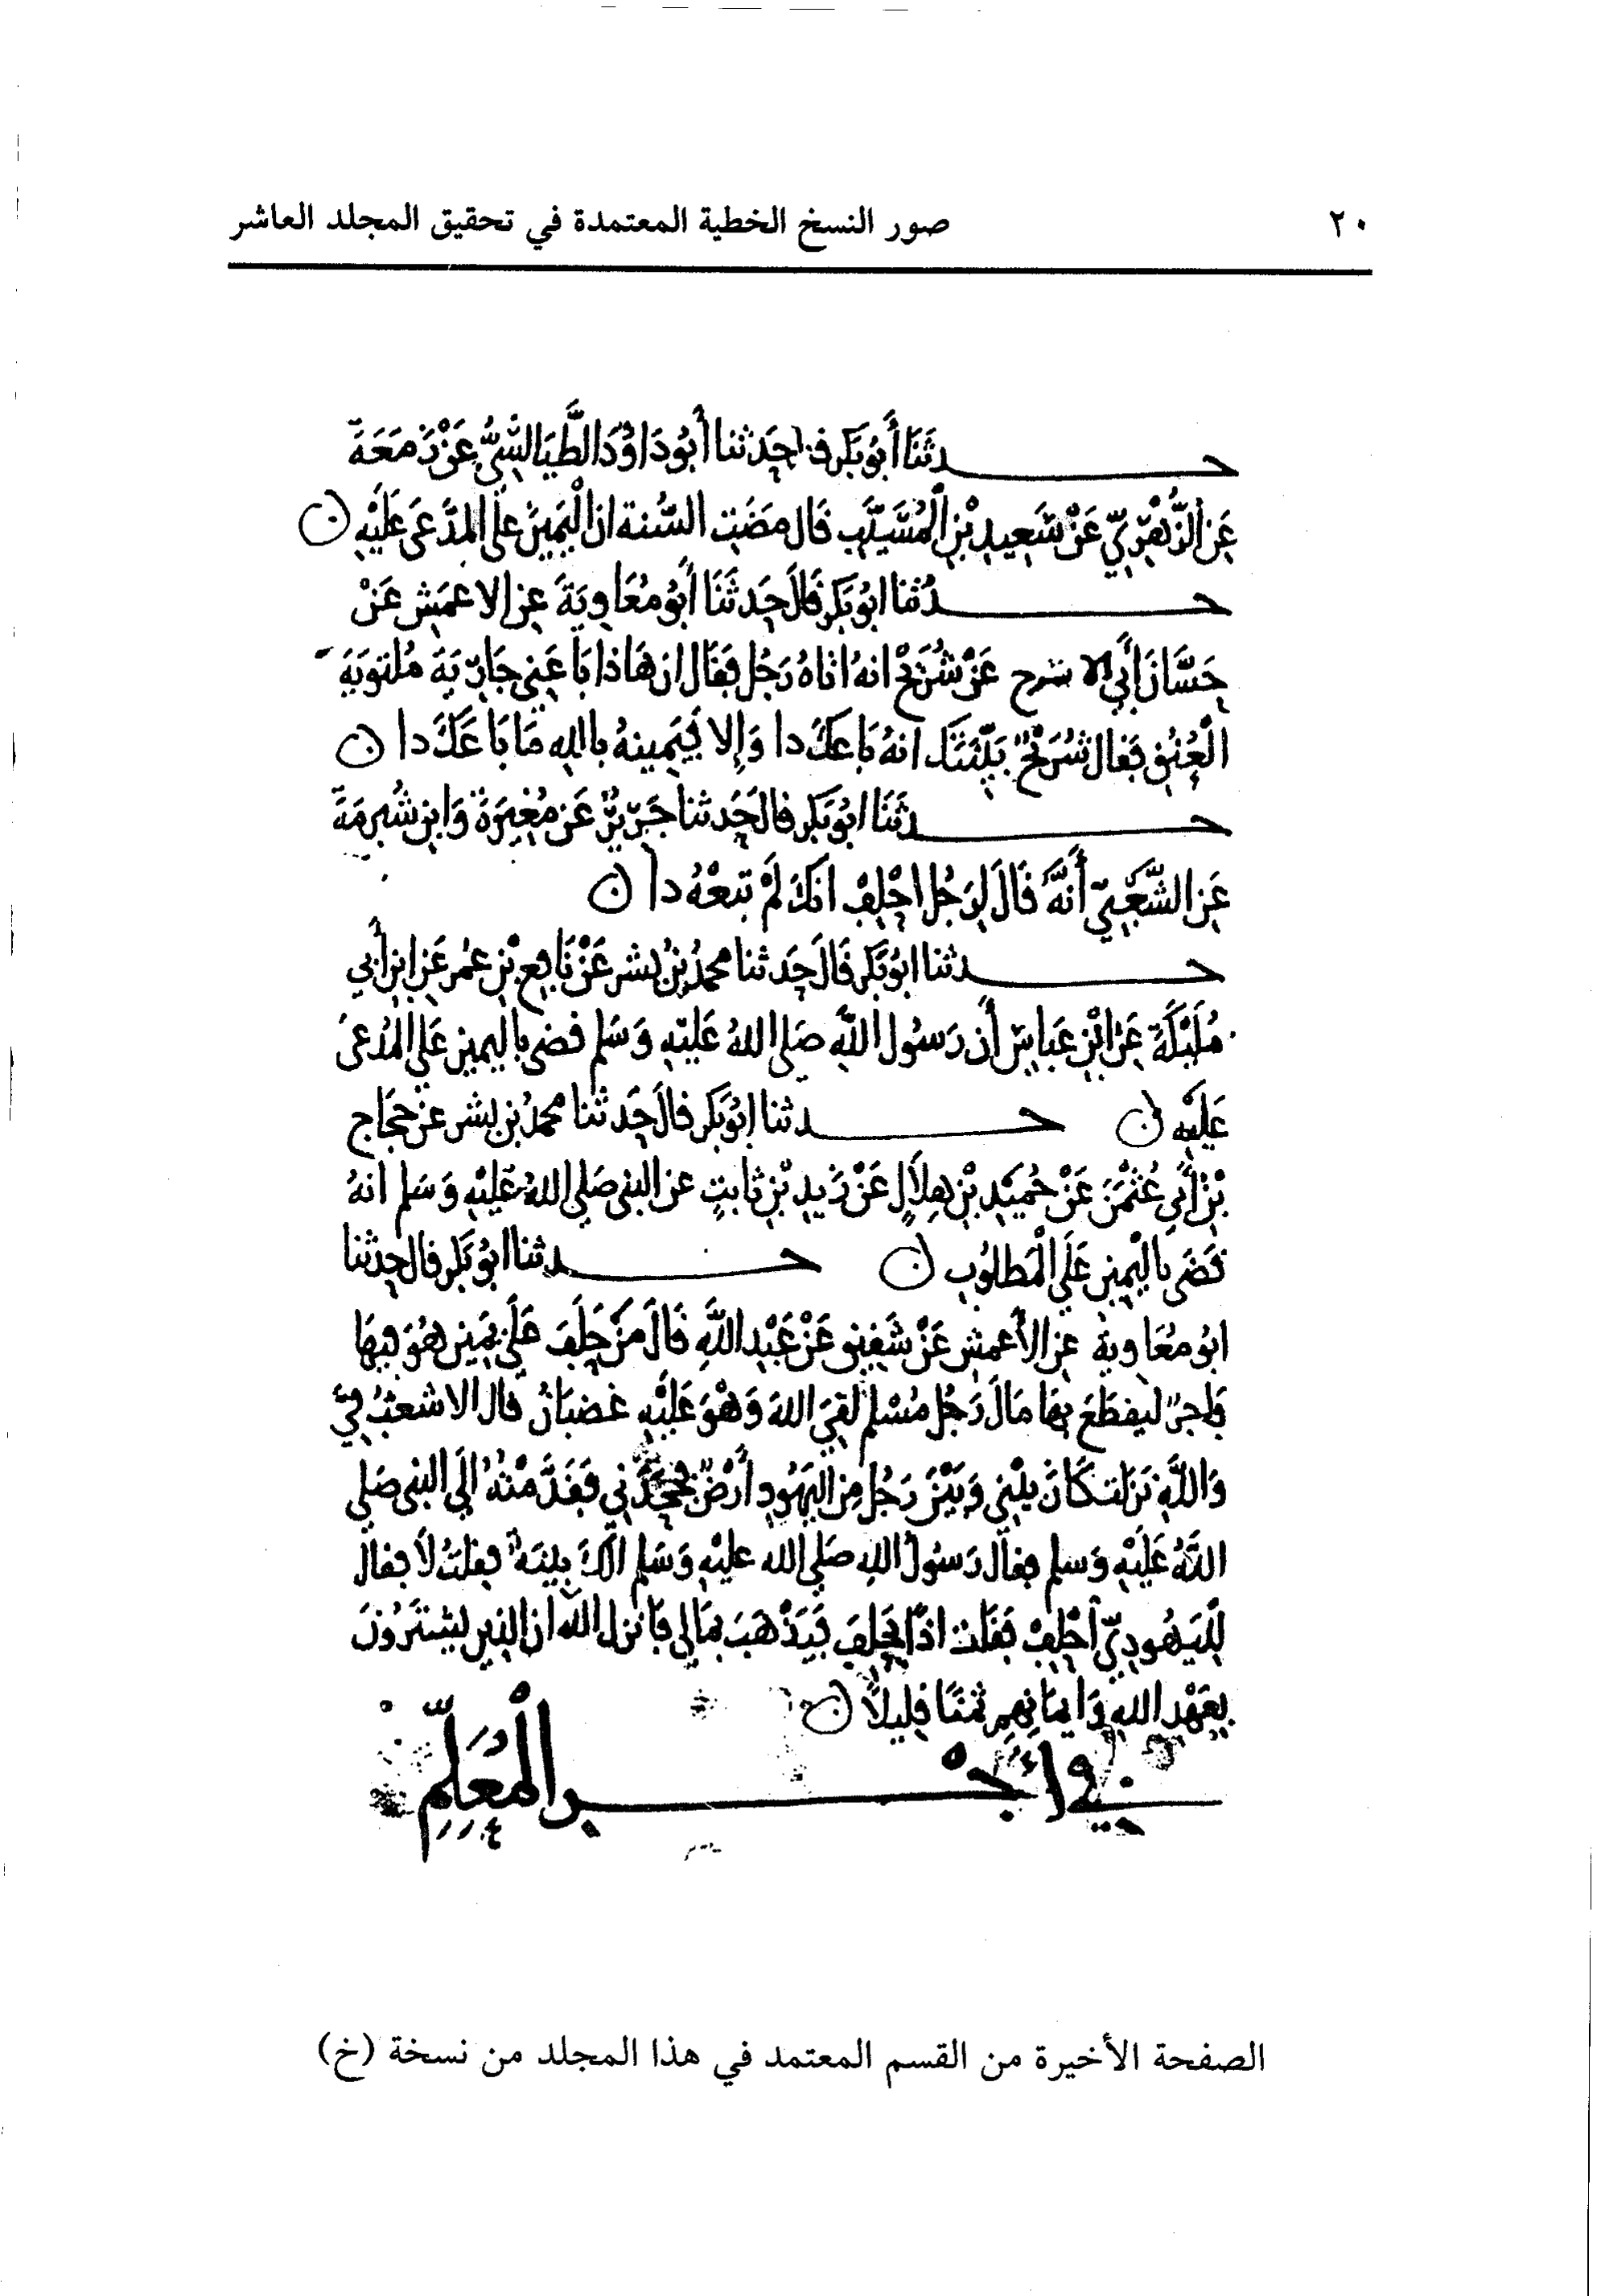 ٢٠
صور النسخ الخطية المعتمدة في تحقيق المجلد العاشر
حدثنا أبو بكر قال حدثنا أبو داود الطيالسي عن زمعة
عن الزهري عن سعيد بن المسيب قال مضت السنة ان اليمين على المدعى عليه
حدثنا ابو بكر قال حدثنا أبو معاوية عن الاعمش عن
حسان أبي الاشرس عن شريح انه اتاه رجل فقال ان هاذا باعني جارية ملتوية
العنق فقال شريح بينتك انه باعك دا وإلا فيمينه بالله ما باعك دا
حدثنا ابو بكر قال حدثنا جرير عن مغيرة وابن شبرمة
عن الشعبي أنه قال لرجل احلف انك لم تبعه دا
حدثنا ابو بكر قال حدثنا محمد بن بشر عن نافع بن عمر عن ابن أبي
مليكة عن ابن عباس أن رسول الله صلى الله عليه وسلم قضى باليمين على المدعى
عليه حدثنا ابو بكر قال حدثنا محمد بن بشر عن حجاج
بن أبي عثمن عن حميد بن هلال عن زيد بن ثابت عن النبي صلى الله عليه وسلم انه
قضى باليمين على المطلوب حدثنا ابو بكر قال حدثنا
ابو معاوية عن الأعمش عن شقيق عن عبد الله قال من حلف على يمين هو فيها
فاجر ليقطع بها مال رجل مسلم لقي الله وهو عليه غضبان قال الاشعث في
والله نزلت كان بيني وبين رجل من اليهود أرض فجحدني فقدمته إلى النبي صلى
الله عليه وسلم فقال رسول الله صلى الله عليه وسلم ألك بينة فقلت لا فقال
لليهودي أحلف فقلت اذا يحلف فيذهب بمالي فانزل الله ان الذين يشترون
بعهد الله وايمانهم ثمنا قليلا
في أجر المعلم
الصفحة الأخيرة من القسم المعتمد في هذا المجلد من نسخة (خ)